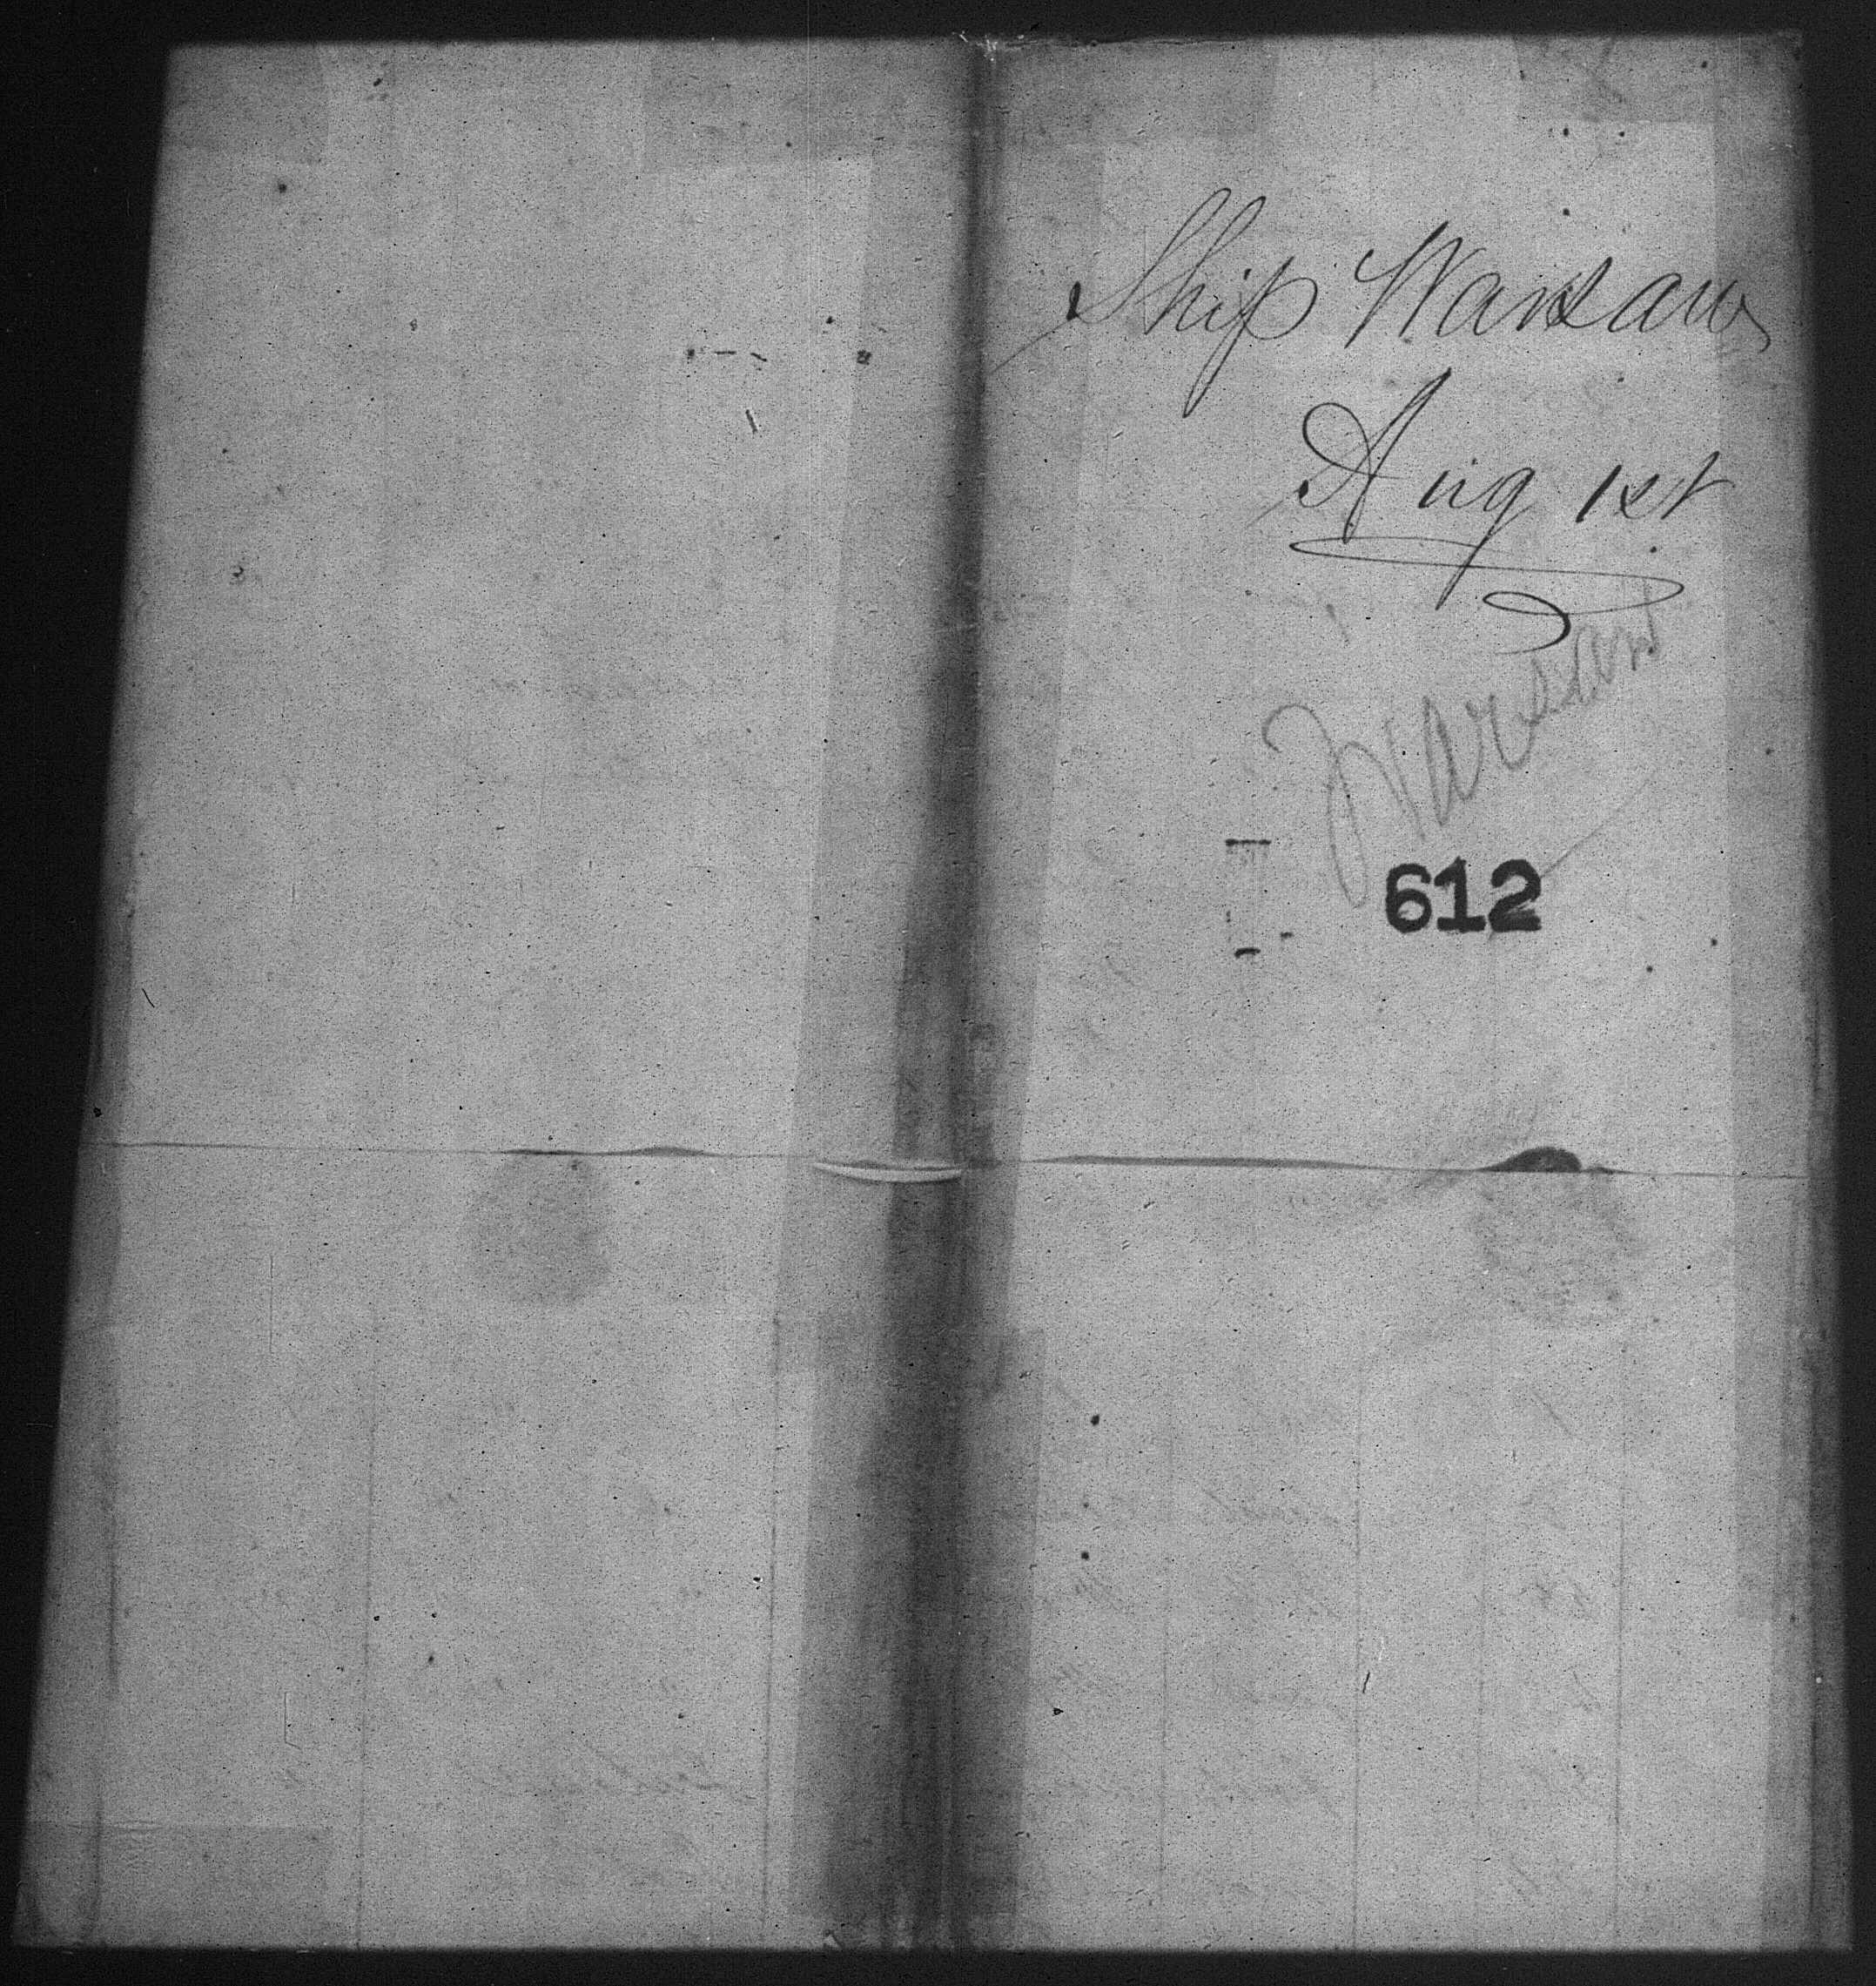 Ship Warsaw
Aug 1st
Warsaw
612